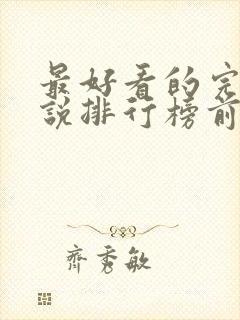 最好看的完
説排行榜前
齊秀敏